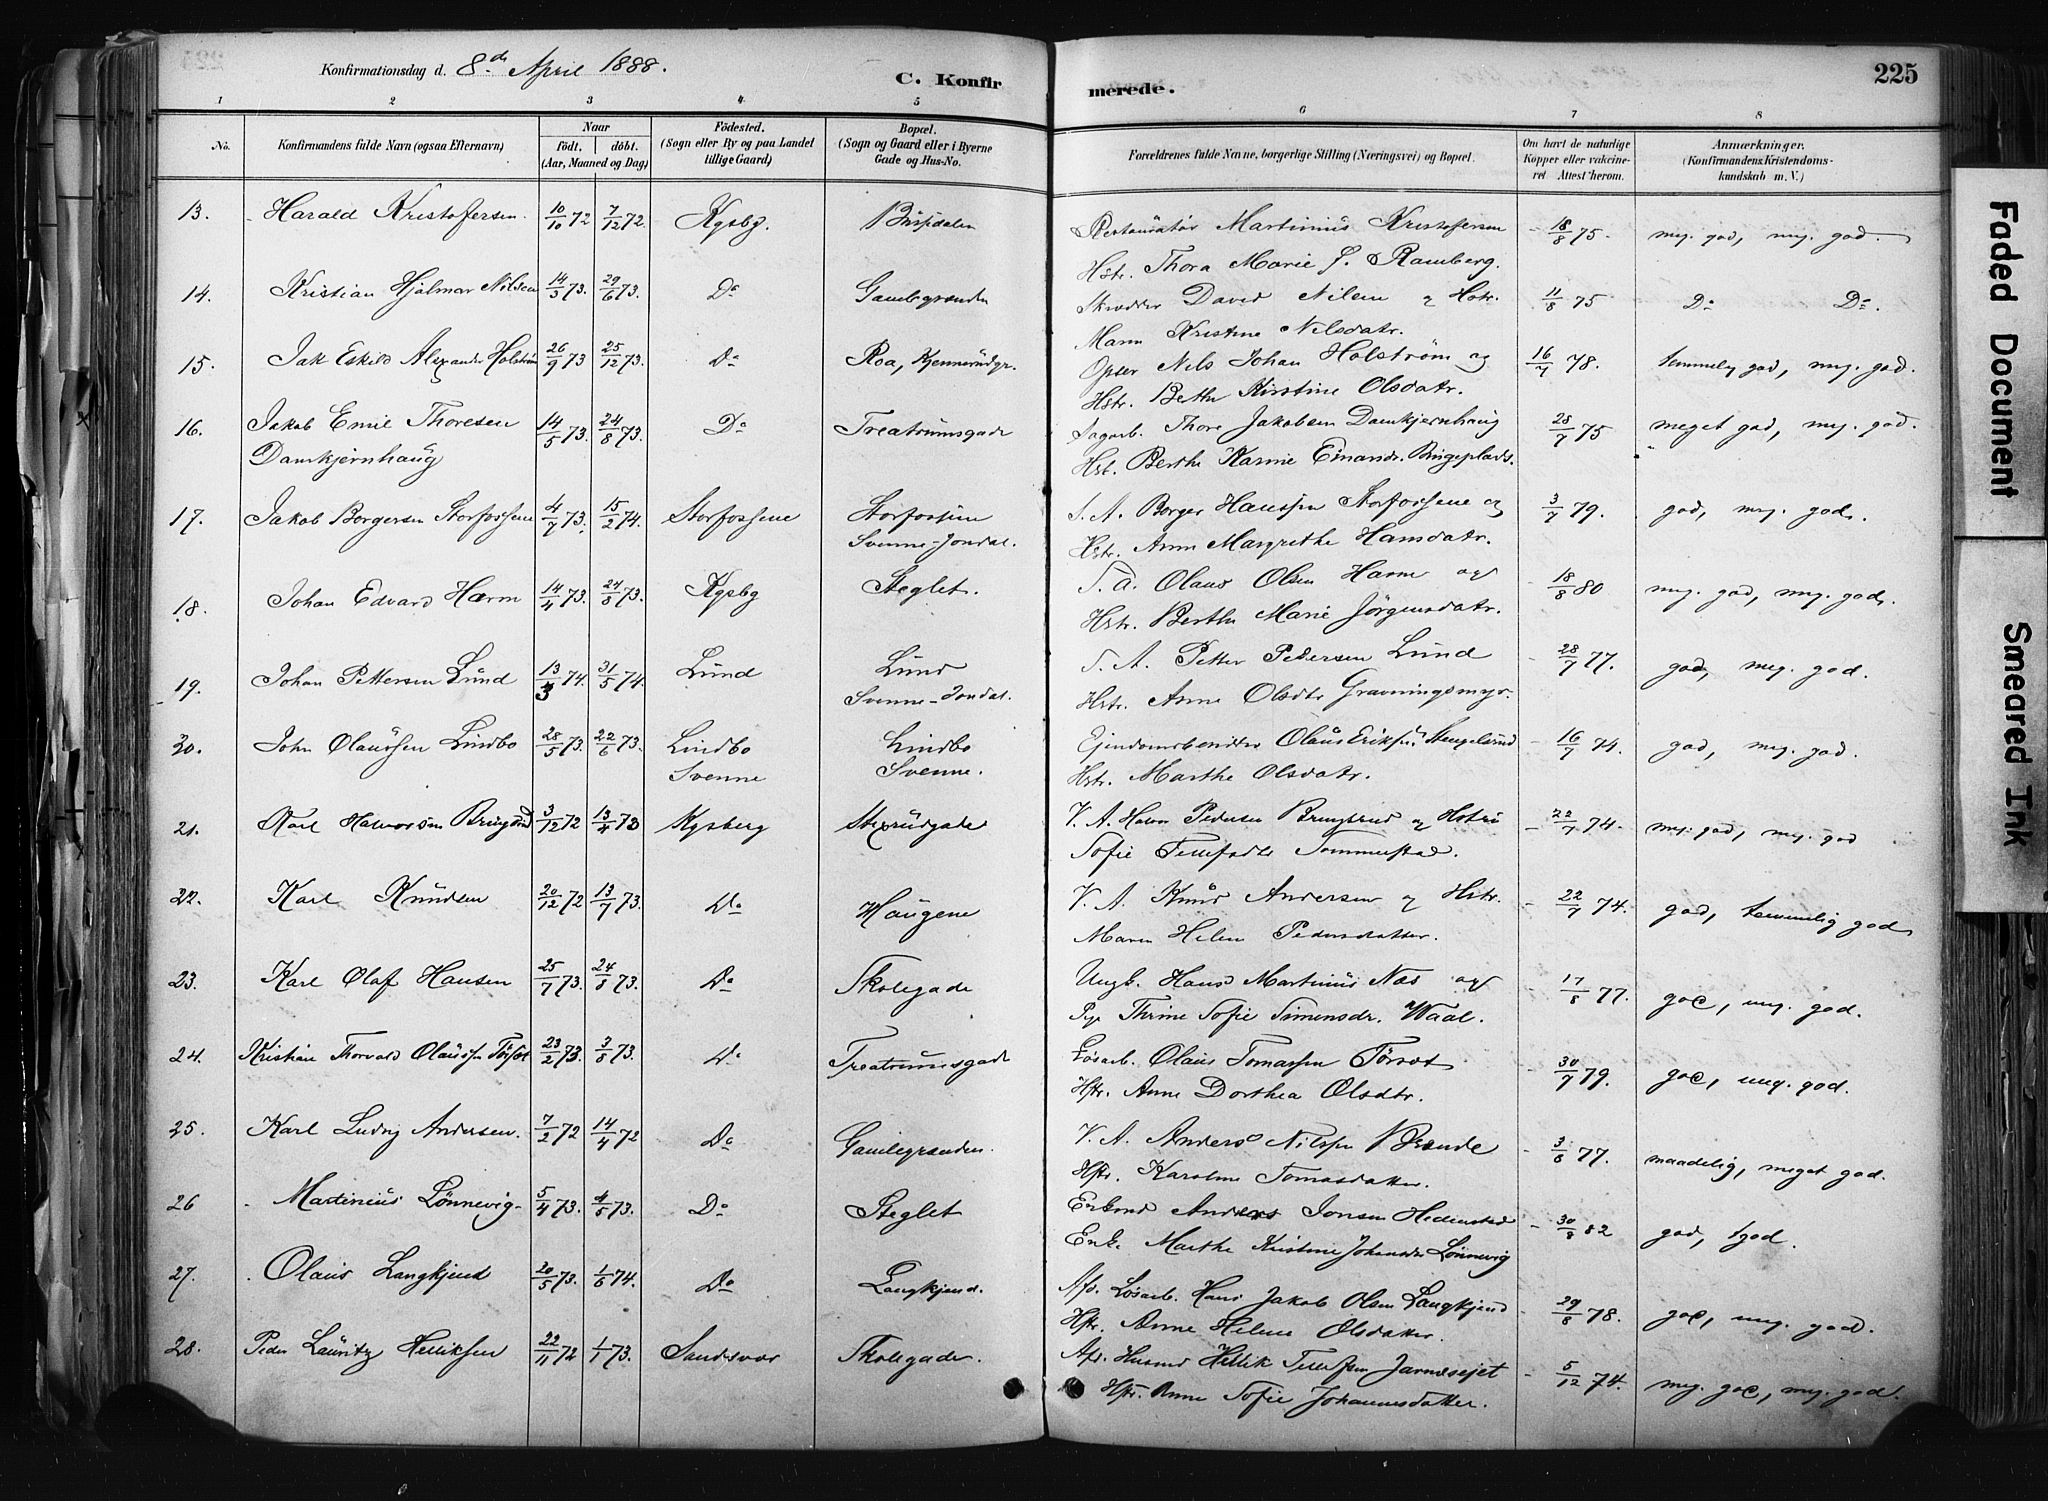 Konfirmationsdag d. 8de April 1888.
C. Konfirmerede.
225
1 2 3 4 5 6 7 8
No. Konfirmandens fulde Navn (ogsaa Efternavn) Naar født, døbt. (Aar, Maaned og Dag) Fødested. (Sogn eller By og paa Landet tillige Gaard) Bopæl. (Sogn og Gaard eller i Byerne Gade og Hus-No. Forældrenes fulde Navne, borgerlige Stilling (Næringsvei) og Bopæl. Om havt de naturlige Kopper eller vakcineret. Attest herom. Anmærkninger. (Konfirmandens Kristendomskundskab m. V.)
13. Harald Kristofersen 10/10 72 7/12 72. Kgsbg. Restauratør Martinius Kristofersen 18/8 75. meg. god, meg. god.
Hstr. Thora Marie J. Ramberg.
14. Kristian Hjalmar Nilsen 14/3 73. 29/6 73. Do Gamlegrænden Skrædder David Nilsen og Hstr. 11/8 75 Do Do.
Maren Kristine Nilsdatr.
15. Jak Eskild Alexander Holström 26/9 73 25/12 73. Do Roa, Kjennerudgr. Opser Nils Johan Holström og 16/7 78. temmelig god, meg. god.
Hstr. Berthe Kirstine Olsdatr.
16. Jakob Emil Thoresen 14/5 73. 24/8 73. Do Treatrumsgade Sagarb. Thore Jakobsen Damkjernhaug 28/7 75 meget god, meg. god.
Damkjernhaug Hst. Berthe Karine Einarsdr. Bingeplads.
17. Jakob Borgersen Storfossene 4/7 73. 15/2 74. Storfossene Storfossene S. A. Borger Hanssen Storfossene og 3/7 79. god, meg. god.
Svenne-Jondal. Hstr. Anne Margrethe Hansdatr.
18. Johan Edvard Hærm 14/4 73. 24/8 73. Kgsbg Steglet. S. A. Olaus Olsen Hærm og 18/8 80 meg. god, meg. god.
Hstr. Berthe Marie Jörgensdatr.
19. Johan Pettersen Lund 13/3 74. 31/5 74. Lund Lund S. A. Petter Pedersen Lund 28/7 77. god, meg. god.
Svenne-Jondal. Hstr. Anne Olsdtr Gravningsmyr.
20. John Olaussen Lindbo 28/5 73. 22/6 73. Lindbo Lindbo Ejendomsbesidder Olaus Eriksen Stengelsrud 16/7 74. god, meg. god.
Svenne Svenne. Hstr. Marthe Olsdatr.
21. Karl Halvorsen Bringsrud 3/12 72 13/4 73 Kgsberg Stexrudgade V. A. Halvor Pedersen Bringsrud og Hstru 22/7 74. meg. god, meg. god
Sofie Tellefsdtr Tommerstad.
22. Karl Knudsen 20/12 72 13/7 73. Do Haugene V. A. Knud Andersen og Hstr. 22/7 74. god, temmelig god
Maren Helene Pedersdatter.
23. Karl Olaf Hansen 25/7 73. 24/8 73. Do Skolegade Ungk. Hans Martinius Næs og 17/8 77. god, meg. god.
Pge Thrine Sofie Simensdr. Waal.
24. Kristian Thorvald Olaussen Törset 23/2 73 3/8 73. Do Treatrumsgade Løsarb. Olaus Tomassen Törset 30/7 79. god, meg. god.
Hstr. Anne Dorthea Olsdtr.
25. Karl Ludvig Andersen. 7/2 72 14/4 72 Do Gamlegrænden. V. A. Anders Nilssen Brænde 3/8 77. maadelig, meget god.
Hstr. Karoline Tomasdatter.
26 Martinius Lønnevig 5/4 73. 4/5 73. Do Steglet Enkmd Anders Jonsen Hedenstad 30/8 82 god, tgod.
Enk. Marthe Kristine Johansdr Lønnevig
27. Olaus Langkjend 20/5 73. 1/6 74. Do Langkjend. Afd. Løsarb. Hans Jakob Olsen Langkjend 29/8 78. god, meg. god.
Hstr. Anne Helene Olsdatter.
28. Peder Lauritz Helliksen 22/11 72 1/1 73. Sandsvær Skolegade. Afd. Husmd Hellik Tellefsen Jarnæsejet 5/12 74. meg. god, meg. god.
Hstr. Anne Sofie Johannesdatter.
Faded Document
Smeared Ink